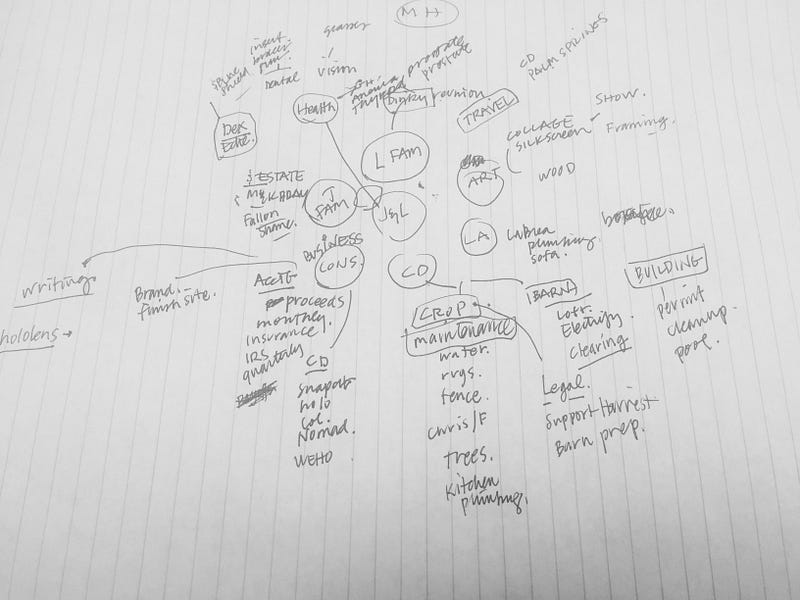 MH
glasses
vision
dental
Health
prostate
prostate
reunion
CD
PALM SPRINGS
TRAVEL
COLLAGE
SILKSCREEN
SHOW.
Framing.
WOOD
ART
L FAM
J FAM
J&L
$ ESTATE
Fallon
LA
LaBrea
plumbing
sofa.
BUSINESS
CONS.
CD
BUILDING
permit
cleanup.
pool.
(BARN)
Loft.
Electrify.
clearing
CROP
maintenance
water.
rugs.
fence.
Chris/F
Trees.
Kitchen
plumbing.
Legal.
Support Harvest
Barn prep.
writing
hololens →
Brand.
finish site.
ACCTG
proceeds
monthly.
insurance
IRS
quarterly
CD
snapart
holo
col.
Nomad.
WEHO